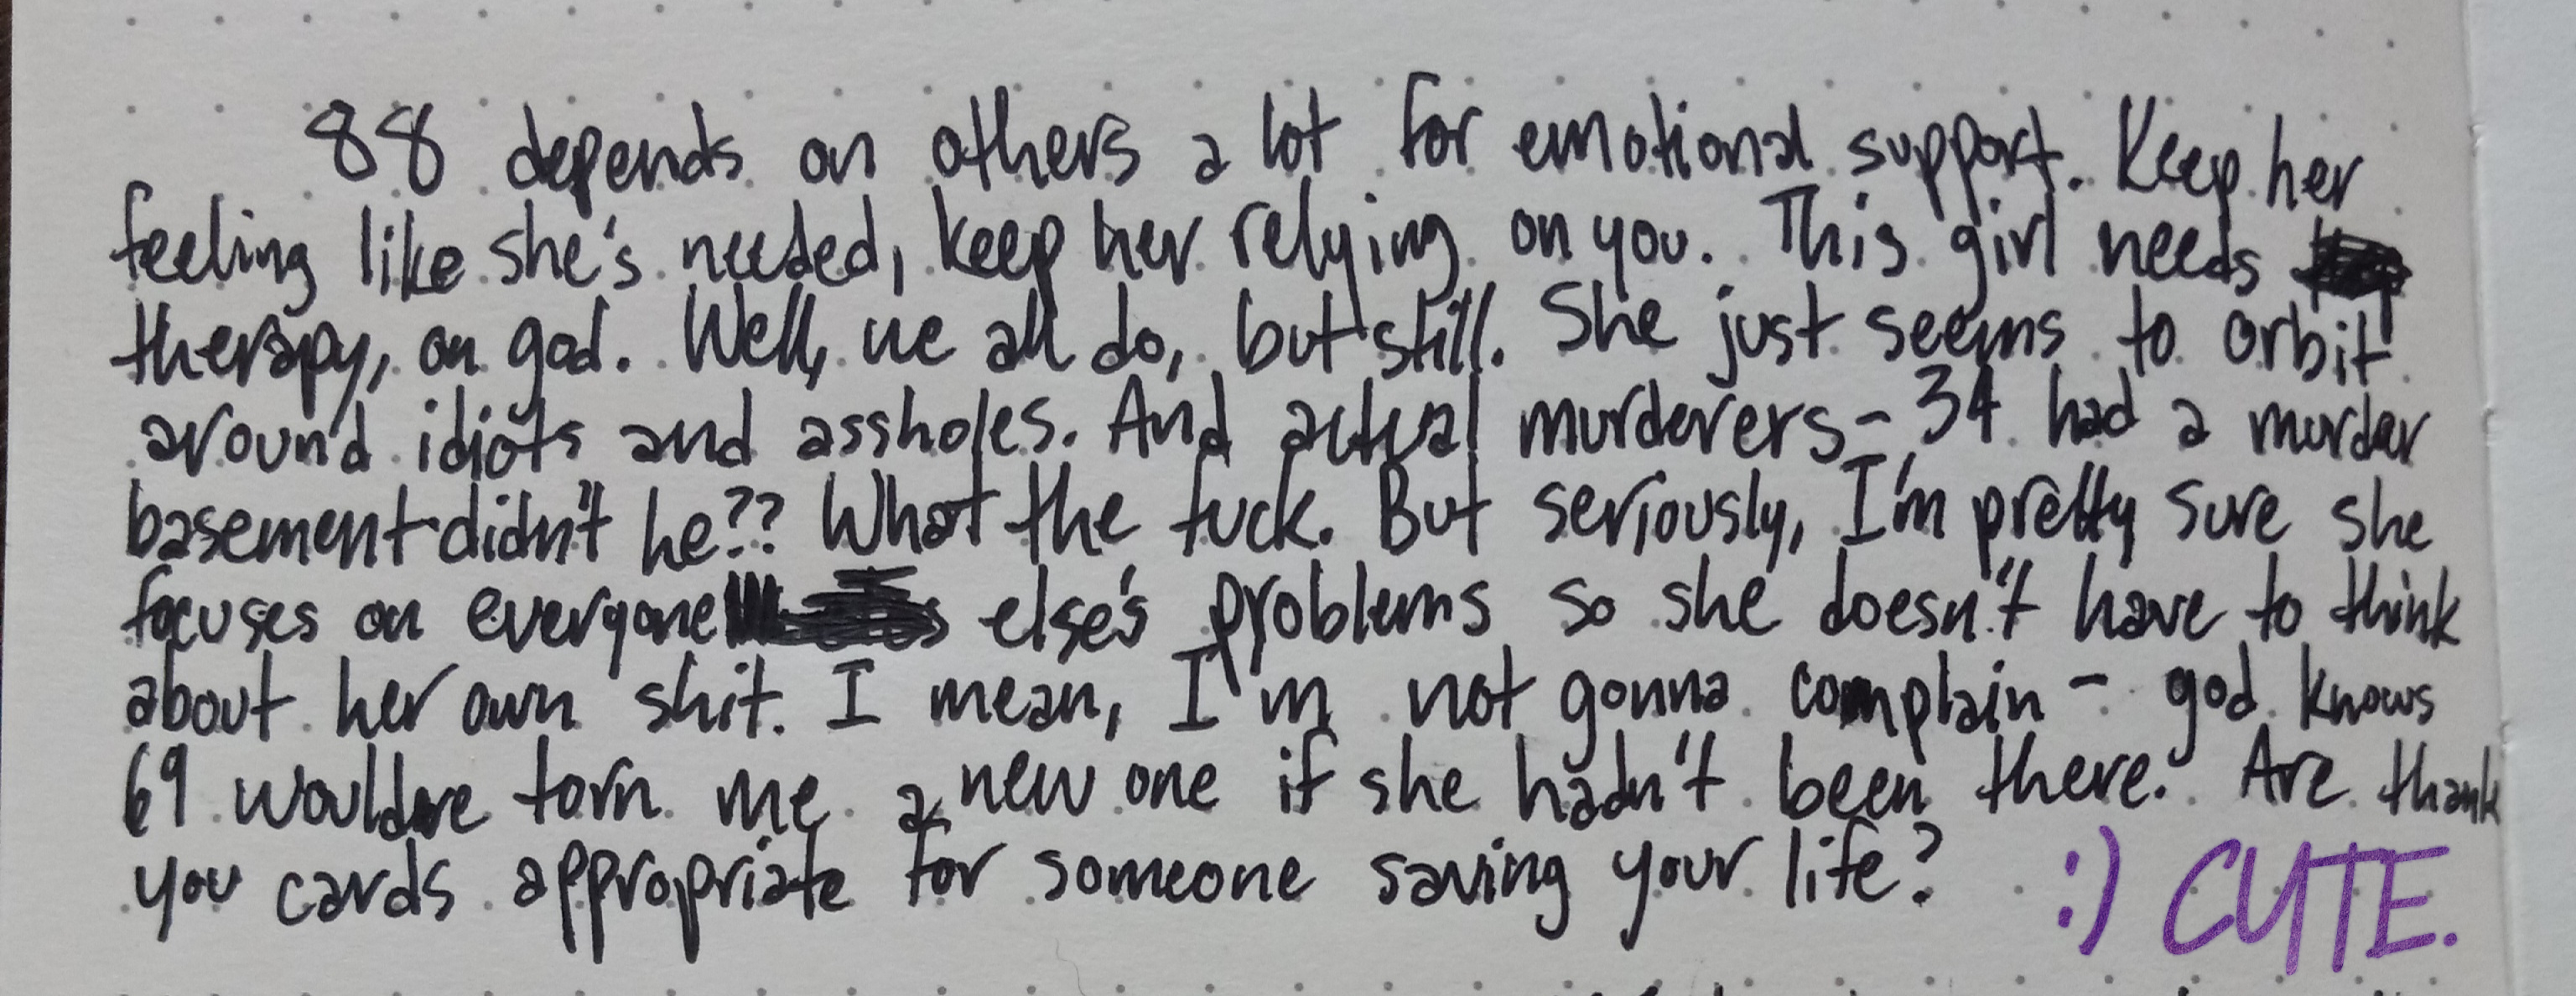 88 depends on others a lot for emotional support. Keep her
feeling like she's needed, keep her relying on you. This girl needs
therapy, on god. Well, we all do, but still. She just seems to orbit
around idiots and assholes. And actual murderers - 34 had a murder
basement didn't he?? What the fuck. But seriously, I'm pretty sure she
focuses on everyone else's problems so she doesn't have to think
about her own shit. I mean, I'm not gonna complain - god knows
69 would've torn me a new one if she hadn't been there. Are thank
you cards appropriate for someone saving your life? :) CUTE.